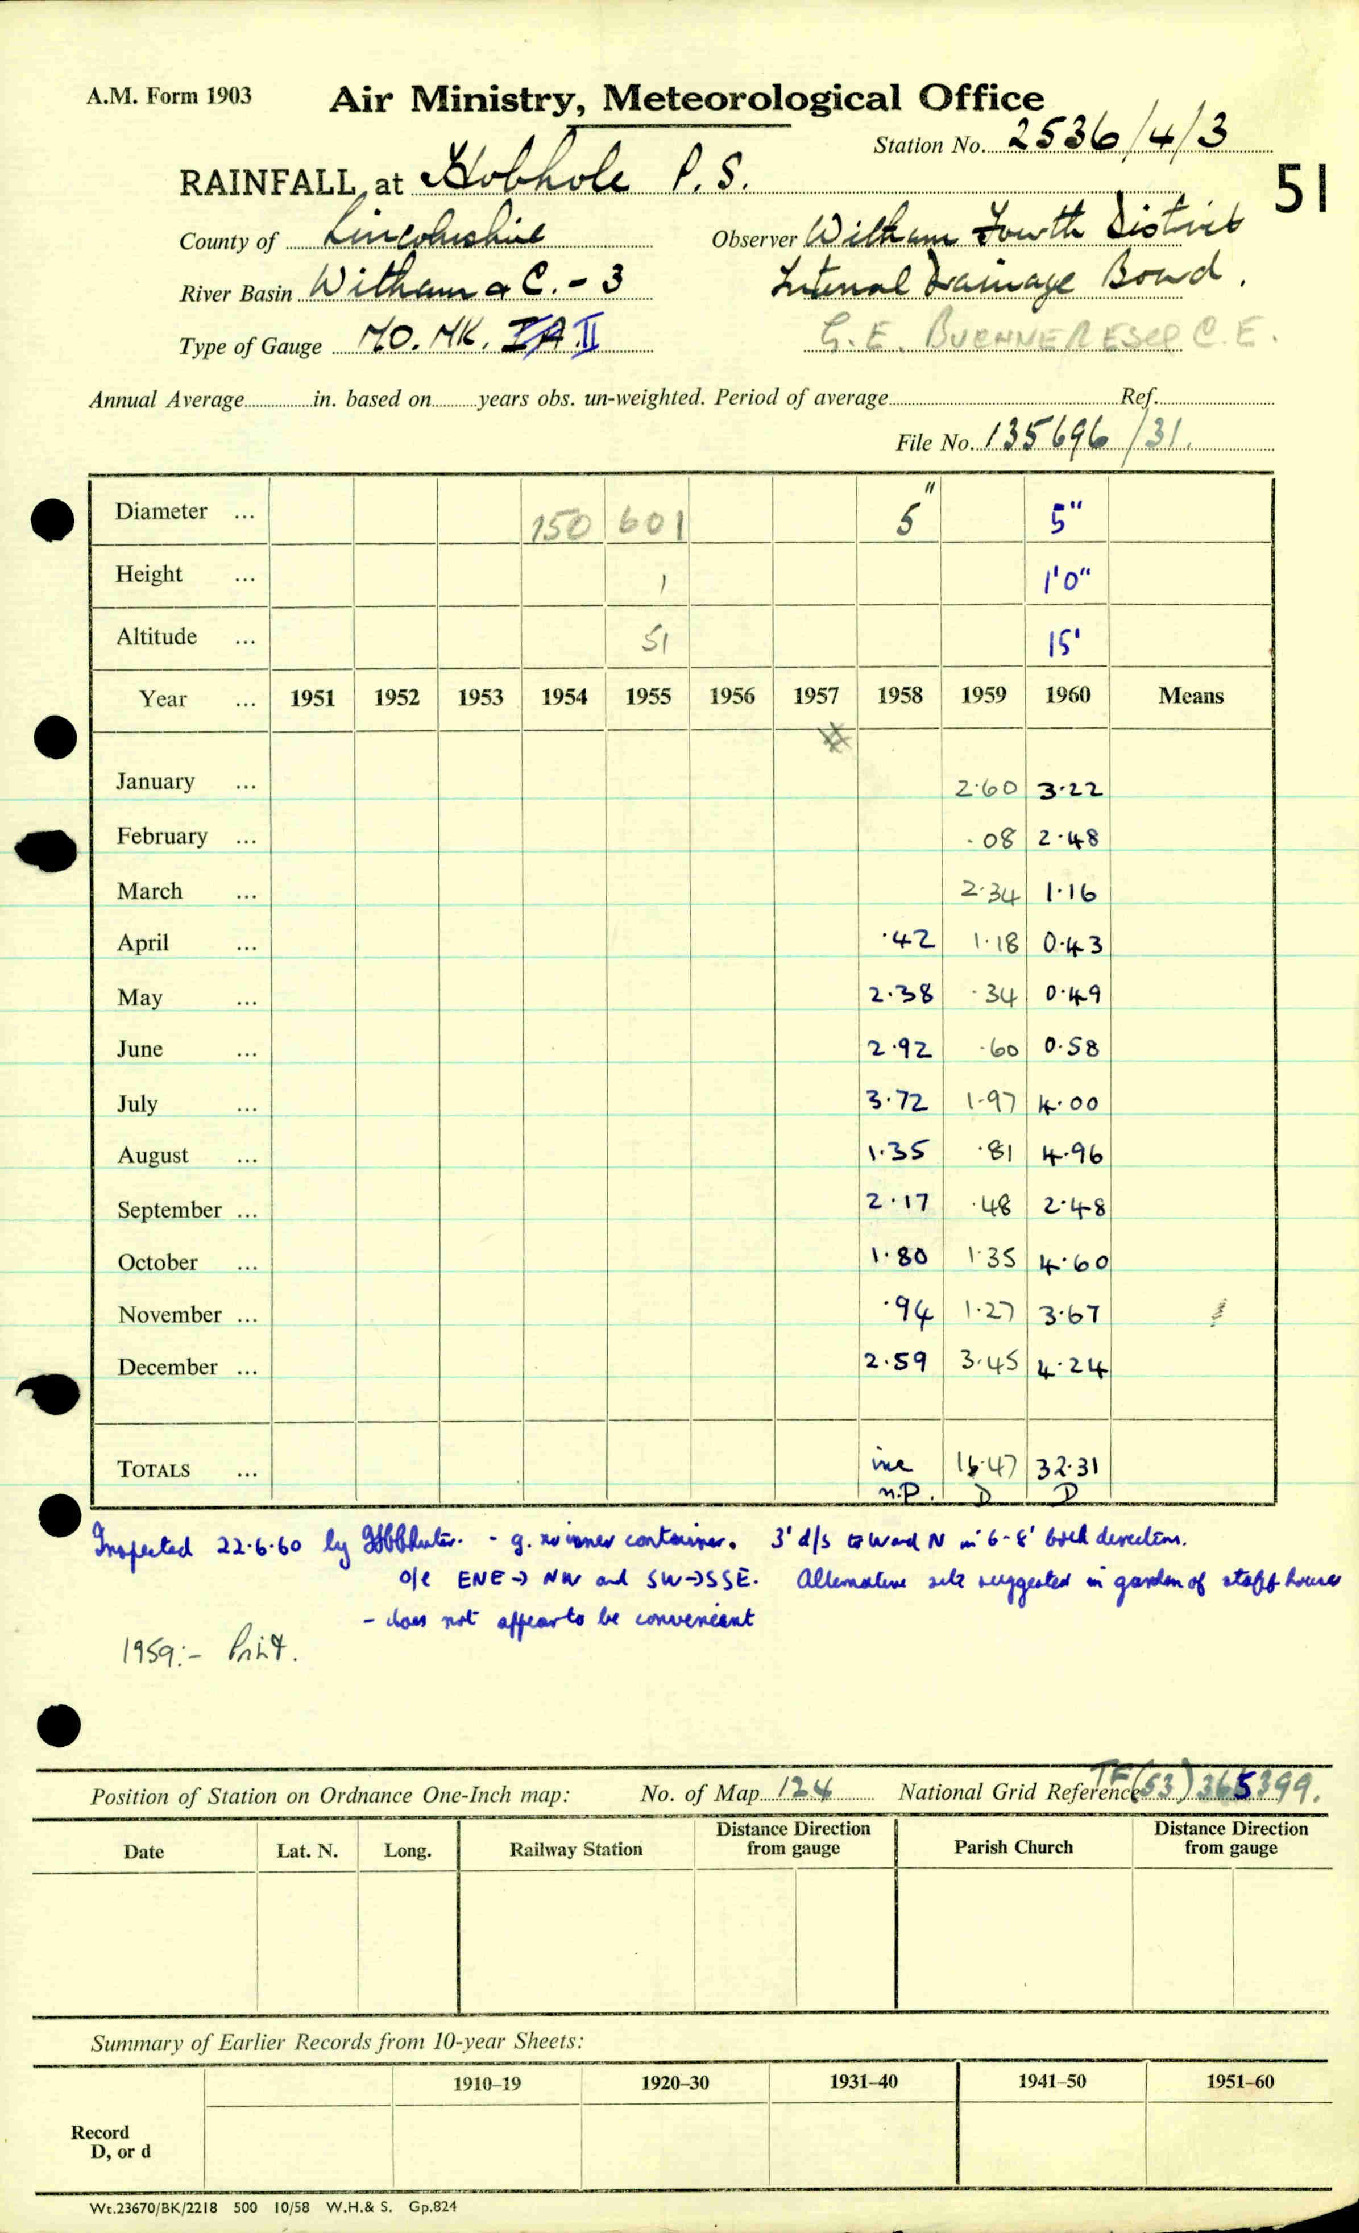 A.M. Form 1903 Air Ministry, Meteorological Office
Station No. 2536/4/3
RAINFALL at Hobhole P.S. 51
County of Lincolnshire Observer Witham Fourth District
River Basin Witham & C. - 3 Internal Drainage Board.
Type of Gauge MO. MK. IA II G. E. BUCHNER ESQ C. E.
Annual Average in. based on years obs. un-weighted. Period of average Ref.
File No. 135696/31.
Diameter ... 150 601 5" 5"
Height ... 1 1'0"
Altitude ... 51 15'
Year ... 1951 1952 1953 1954 1955 1956 1957 1958 1959 1960 Means
January ... 2.60 3.22
February ... .08 2.48
March ... 2.34 1.16
April ... .42 1.18 0.43
May ... 2.38 .34 0.49
June ... 2.92 .60 0.58
July ... 3.72 1.97 4.00
August ... 1.35 .81 4.96
September ... 2.17 .48 2.48
October ... 1.80 1.35 4.60
November ... .94 1.27 3.67
December ... 2.59 3.45 4.24
TOTALS ... inc 16.47 32.31
n.P. D D
Inspected 22.6.60 by - g. no inner container. 3' d/s to W and N in 6-8' both directions.
o/e ENE → NW and SW → SSE. Alternative site suggested in garden of staff house
- does not appear to be convenient
1959:- Print.
Position of Station on Ordnance One-Inch map: No. of Map 124 National Grid Reference TF(53)365399.
Date Lat. N. Long. Railway Station Distance Direction from gauge Parish Church Distance Direction from gauge
Summary of Earlier Records from 10-year Sheets:
1910–19 1920–30 1931–40 1941–50 1951–60
Record
D, or d
Wt.23670/BK/2218 500 10/58 W.H.& S. Gp.824